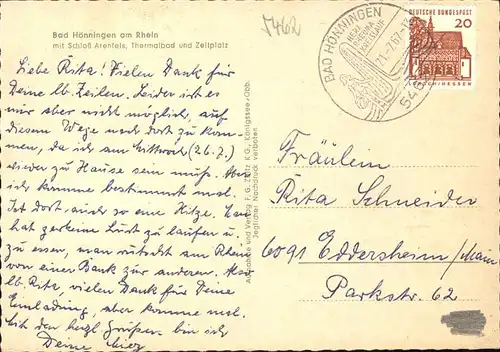 Bad Hönningen am Rhein
mit Schloß Arenfels, Thermalbad und Zeltplatz
Liebe Rita! Vielen Dank für
Deine lb. Zeilen. Leider ist es
mir aber nicht möglich, auf
diesem Wege noch dort zu kom-
men, da ich am Mittwoch (26.7.)
wieder zu Hause sein muß. Aber
ich komme bestimmt mal.
Ist dort auch so eine Hitze. Man
hat zu keine Lust zu laufen u.
zu essen, man rutscht am Rhein
von einer Bank zur anderen. Also
lb. Rita, vielen Dank für Deine
Einladung, aber komme mal.
Mit den herzl. Grüßen bin ich
Deine
Verlag F. G. Zeitz K G., Königssee/Obb.
Jeglicher Nachdruck verboten
5462
BAD HÖNNINGEN
21.-7.67-12
DEUTSCHE BUNDESPOST
20
LORSCH/HESSEN
Fräulein
Rita Schneider
6091 Eddersheim/Main
Parkstr. 62